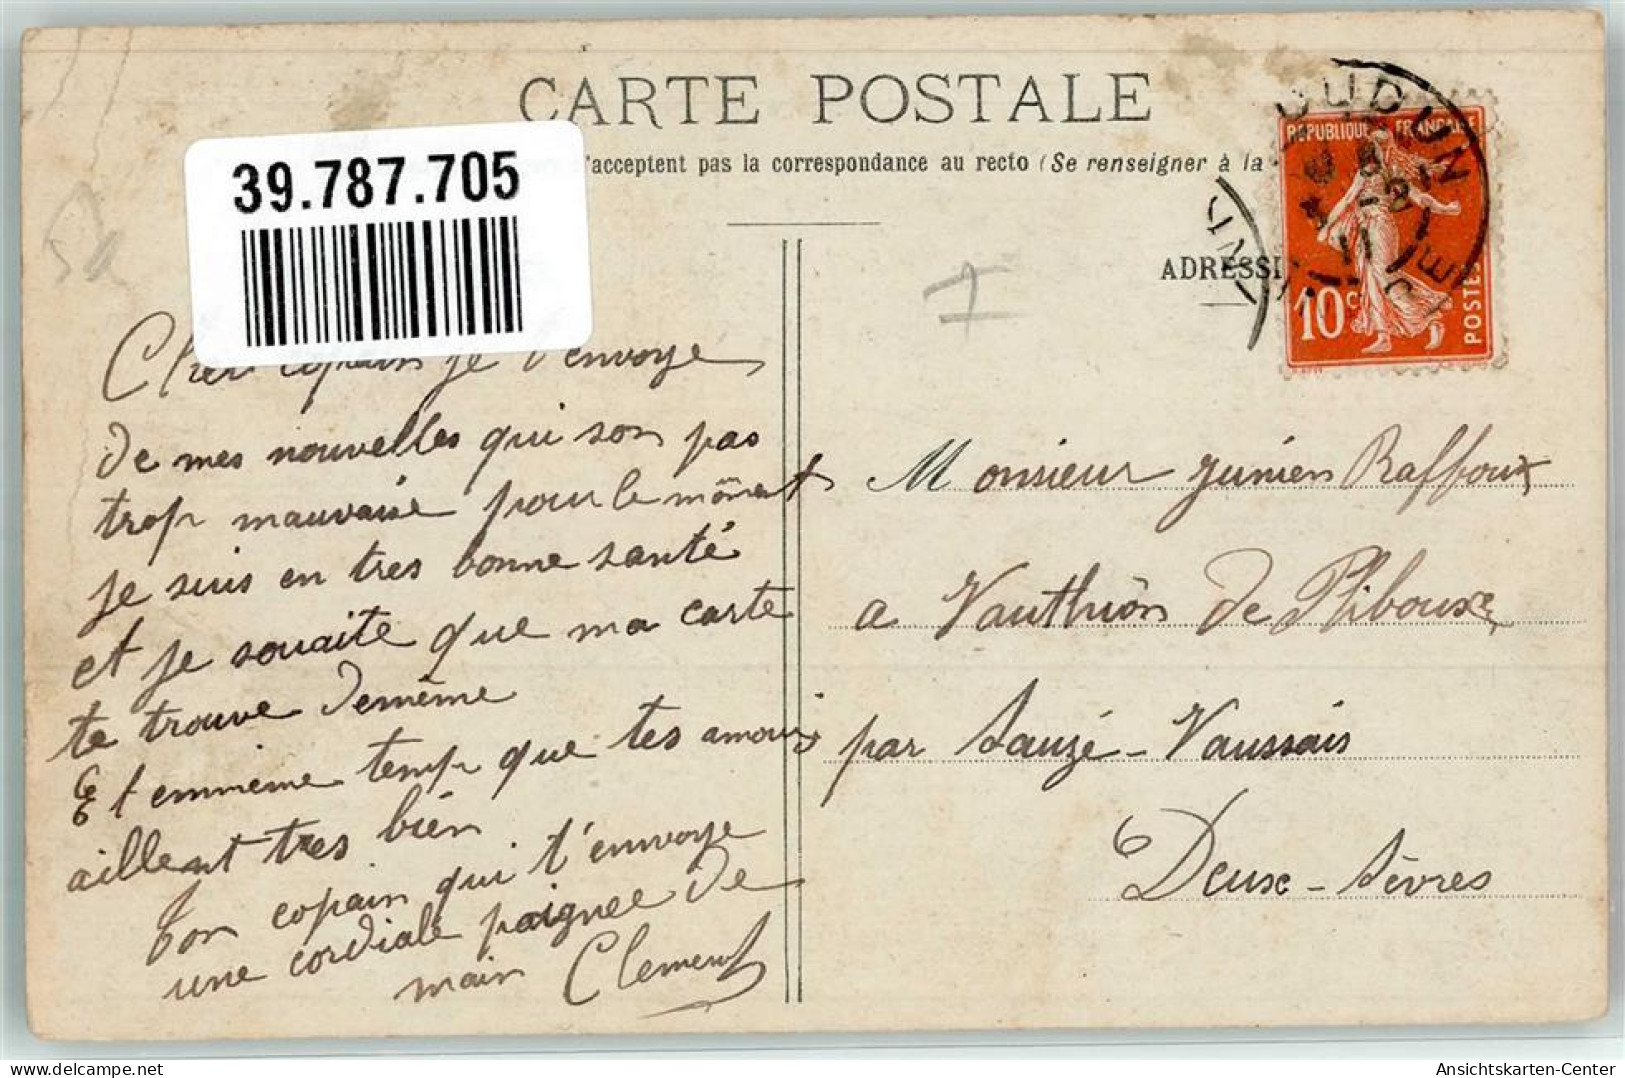 CARTE POSTALE
39.787.705
'acceptent pas la correspondance au recto (Se renseigner à la
ADRESSE
REPUBLIQUE FRANÇAISE
10c
POSTES
LOUDUN
VIENNE
11
Cher copain je t'envoye
de mes nouvelles qui son pas
trop mauvaise pour le môment
je suis en tres bonne santé
et je souaite que ma carte
te trouve demême
Et emmême temp que tes amours
aillent tres bien
Ton copain qui t'envoye
une cordiale poignee de
main Clement
Monsieur Junien Raffoux
a Vauthiôn de Pliboux
par Sauzé-Vaussais
Deux-Sèvres
Ansichtskarten-Center